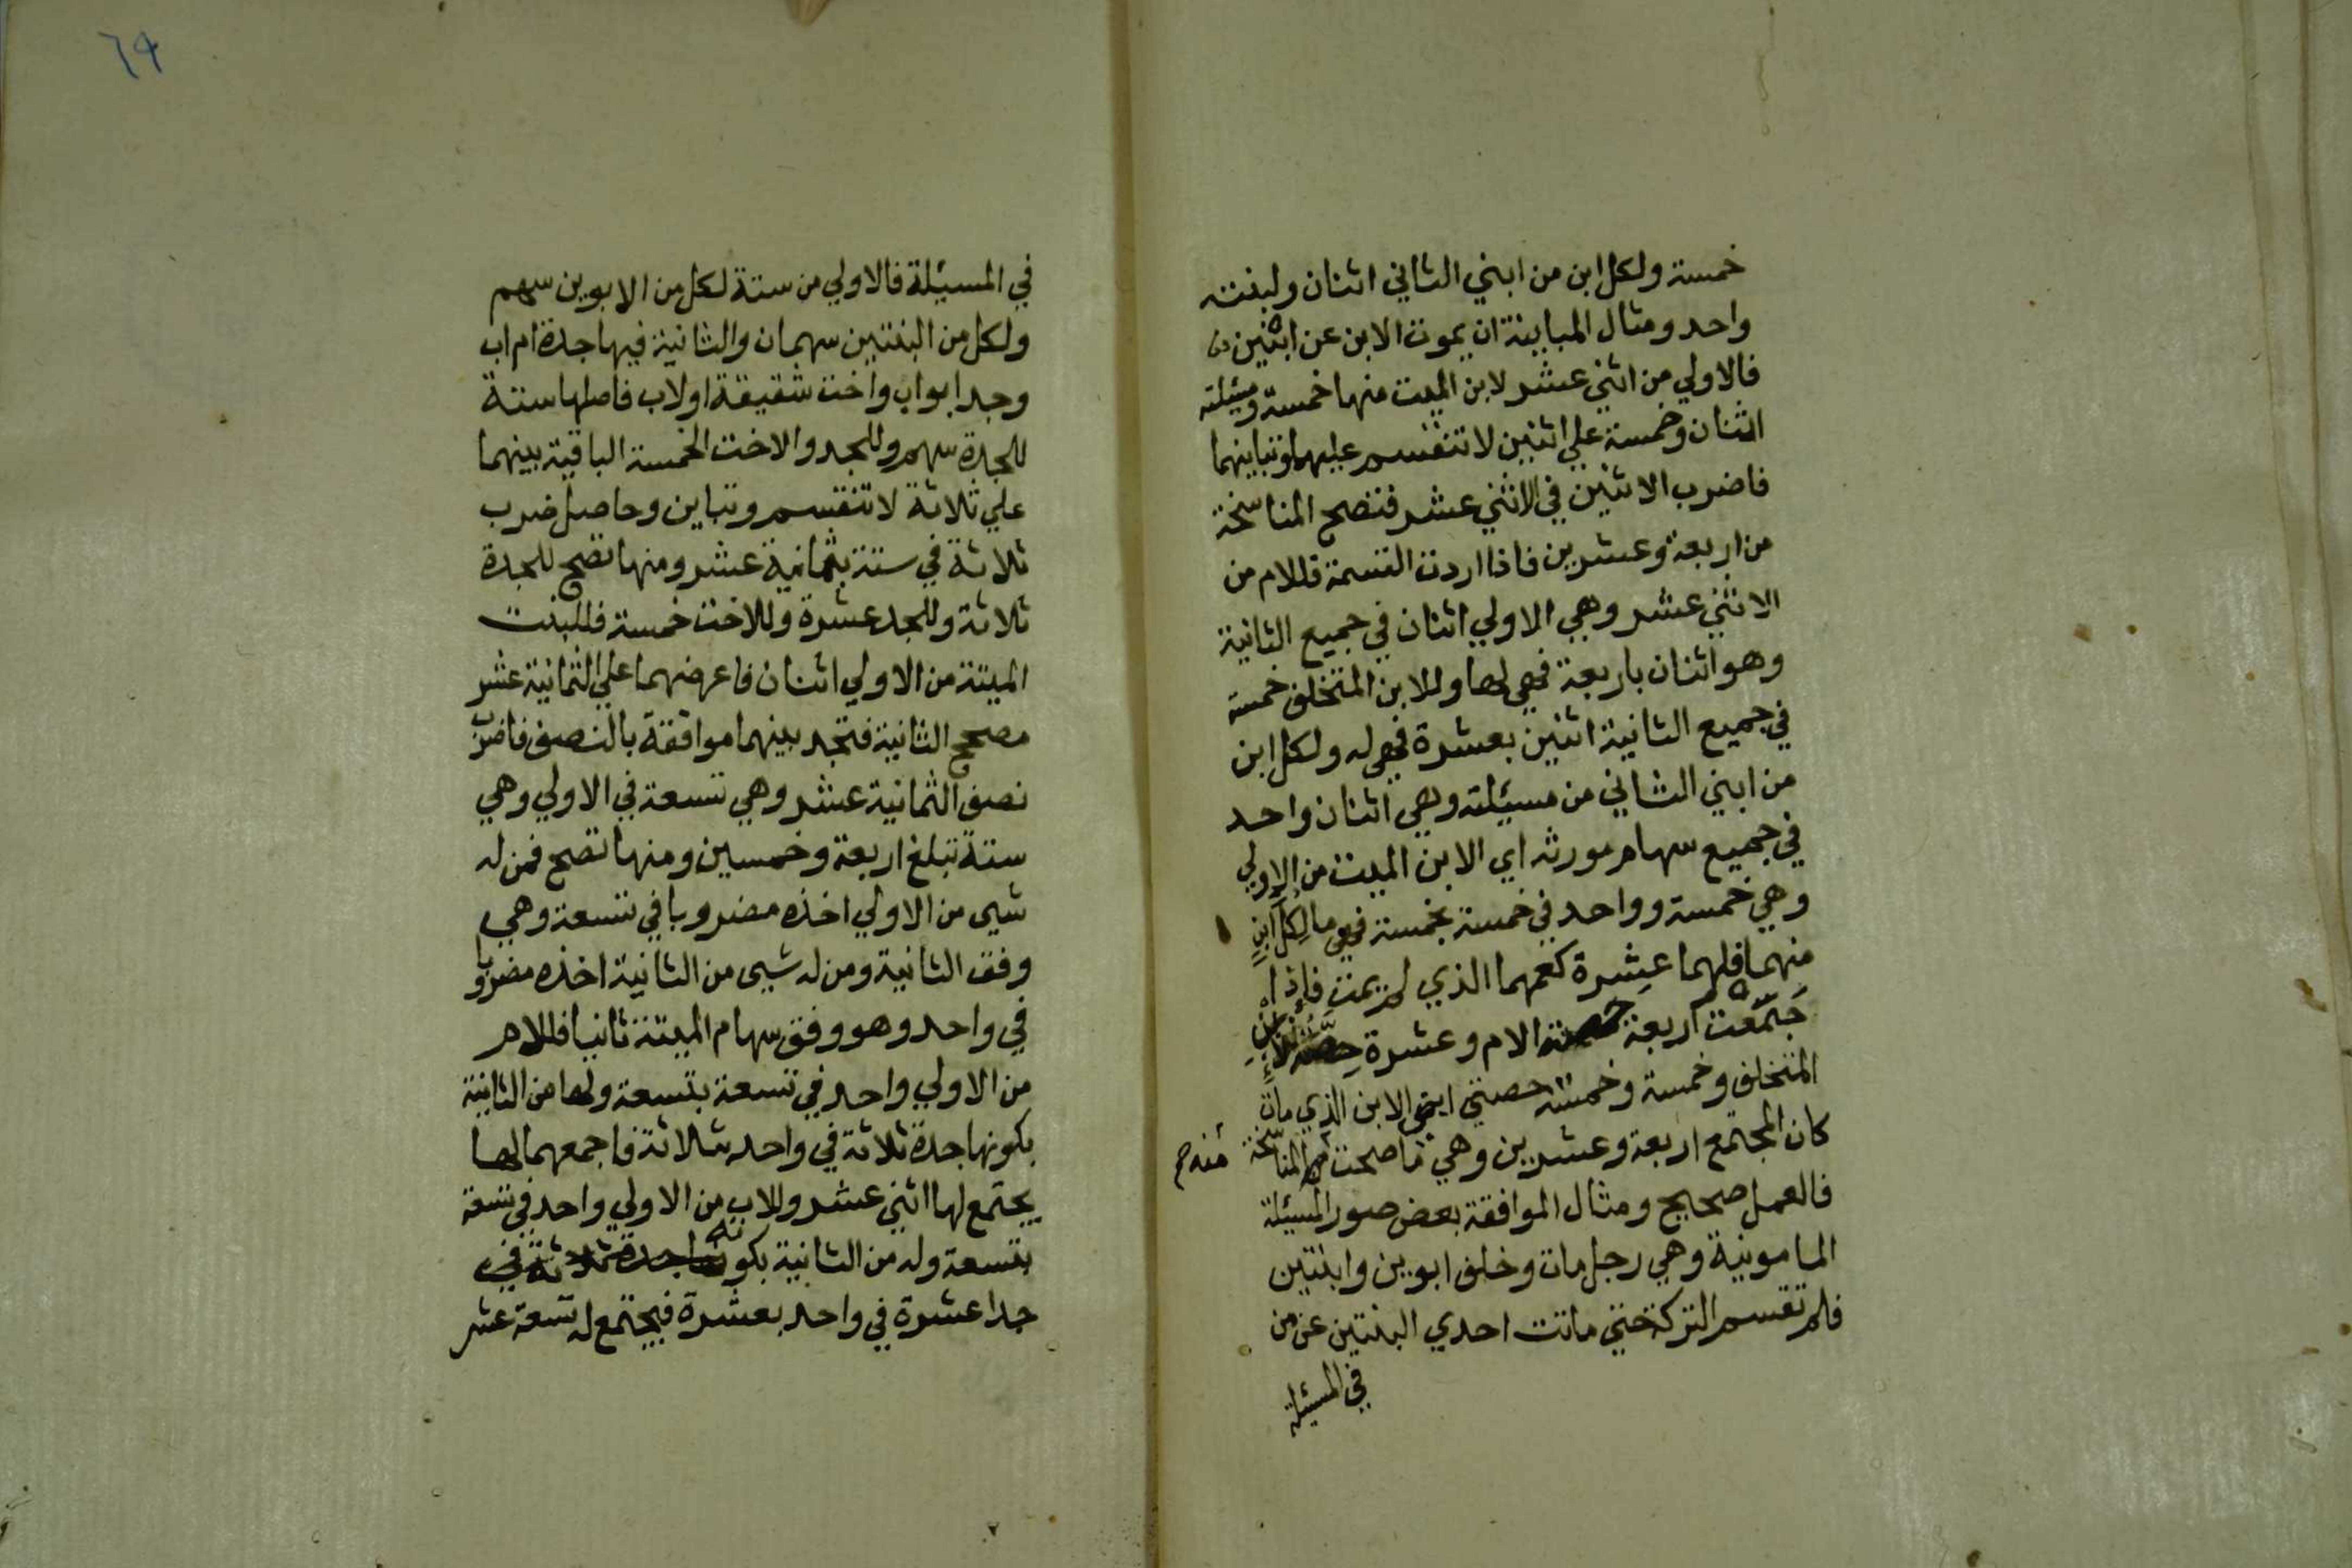 خمسة ولكل ابن من ابني الثاني اثنان ولبنته
واحد ومثال المباينة ان يموت الابن عن ابنين
فالاولي من اثني عشر لابن الميت منها خمسة ومسئلته
اثنان وخمسة علي اثنين لا تنقسم عليهما وتباينهما
فاضرب الاثنين في الاثني عشر فتصح المناسخة
من اربعة وعشرين فاذا اردت القسمة فللام من
الاثني عشر وهي الاولي اثنان في جميع الثانية
وهو اثنان باربعة فهي لها وللابن المتخلف خمسة
في جميع الثانية اثنين بعشرة فهي له ولكل ابن
من ابني الثاني من مسيئلته وهي اثنان واحد
في جميع سهام مورثه اي الابن الميت من الاولي
وهي خمسة وواحد في خمسة بخمسة فهي ما لكل ابن
منهما فلهما عشرة كعمهما الذي لم يمت فاذا
جمعت اربعة حصة الام وعشرة حصة الابن
المتخلف وخمسة وخمسة حصتي ابني الابن الذي مات
كان المجتمع اربعة وعشرين وهي ما صحت منه المناسخة
منه صح
فالعمل صحيح ومثال الموافقة بعض صور المسيئلة
المامونية وهي رجل مات وخلف ابوين وابنتين
فلم تقسم التركة حتي ماتت احدي البنتين عن من
في المسيئلة
٦٩
في المسيئلة فالاولي من ستة لكل من الابوين سهم
ولكل من البنتين سهمان والثانية فيها جدة ام اب
وجد ابو اب واخت شقيقة او لاب فاصلها ستة
للجدة سهم وللجد والاخت الخمسة الباقية بينهما
علي ثلاثة لا تنقسم وتباين وحاصل ضرب
ثلاثة في ستة بثمانية عشر ومنها تصح للجدة
ثلاثة وللجد عشرة وللاخت خمسة فللبنت
الميتة من الاولي اثنان فاعرضهما علي الثمانية عشر
مصحح الثانية فتجد بينهما موافقة بالنصف فاضرب
نصف الثمانية عشر وهي تسعة في الاولي وهي
ستة تبلغ اربعة وخمسين ومنها تصح فمن له
شيى من الاولي اخذه مضروبا في تسعة وهي
وفق الثانية ومن له شيى من الثانية اخذه مضروبا
في واحد وهو وفق سهام الميتة ثانيا فللام
من الاولي واحد في تسعة بتسعة ولها من الثانية
بكونها جدة ثلاثة في واحد بثلاثة فاجمعهما لها
يجتمع لها اثني عشر وللاب من الاولي واحد في تسعة
بتسعة وله من الثانية بكونه
جدا عشرة في واحد بعشرة فيجتمع له تسعة عشر